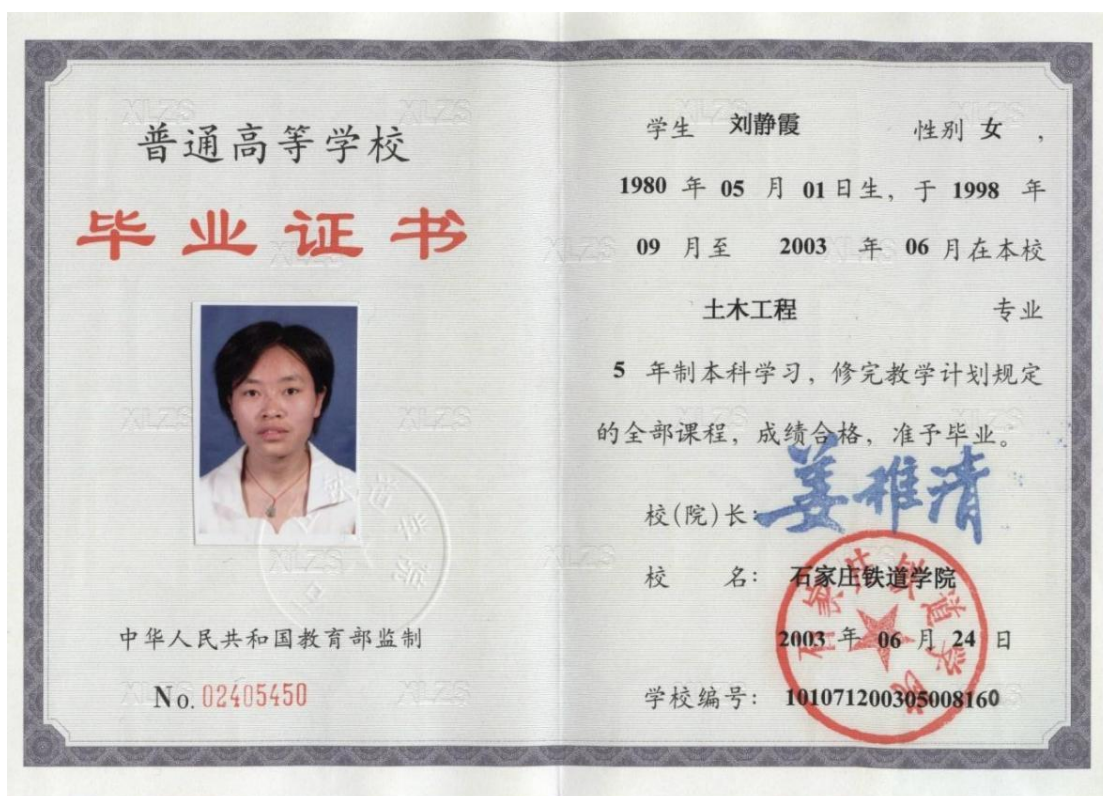 普通高等学校
毕业证书
中华人民共和国教育部监制
No. 02405450
学生 刘静霞 性别 女 ,
1980 年 05 月 01 日生, 于 1998 年
09 月至 2003 年 06 月在本校
土木工程 专业
5 年制本科学习, 修完教学计划规定
的全部课程, 成绩合格, 准予毕业。
校(院)长: 姜稚清
校 名: 石家庄铁道学院
2003 年 06 月 24 日
学校编号: 101071200305008160
石家庄铁道学院
XLZS